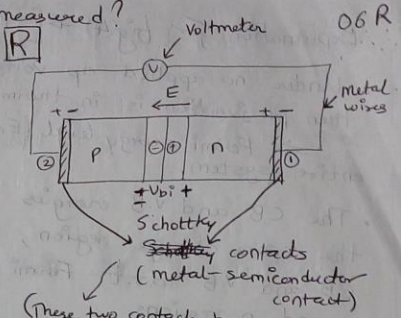 measured?
06 R
R
voltmeter
V
E
metal wires
+ -
+ -
②
p
- +
n
①
+ Vbi +
-
Schottky
contacts
(metal-semiconductor
contact)
(These two contacts